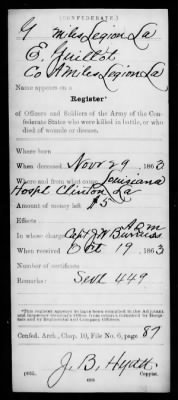 (CONFEDERATE.)
G Miles Legion La
E. Guillot
Co A Miles Legion La
Name appears on a
Register*
of Officers and Soldiers of the Army of the Con-
federate States who were killed in battle, or who
died of wounds or disease.
Where born
When deceased Novr 29, 1863
Where and from what cause Louisiana
Hospl Clinton La
Amount of money left $5
Effects
In whose charge Capt J W Burruss AQM
When received Oct 19, 1863
Number of certificate
Remarks: Sent 449
*This register appears to have been compiled in the Adjutant
and Inspector General's Office, from returns furnished by Hospi-
tals and by Regimental and Company Officers.
Confed. Arch., Chap. 10, File No. 6, page 87
J. B. Hyatt
(635)
Copyist.